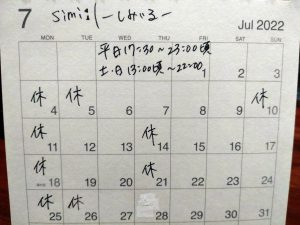 7 simi:l ーしみるー
Jul 2022
平日17:30~23:00頃
土・日13:00頃~22:00
MON TUE WED THU FRI SAT SUN
1 2 3
休 休 休
4 5 6 7 8 9 10
休 休
11 12 13 14 15 16 17
休 休
18 19 20 21 22 23 24
休 休
25 26 27 28 29 30 31